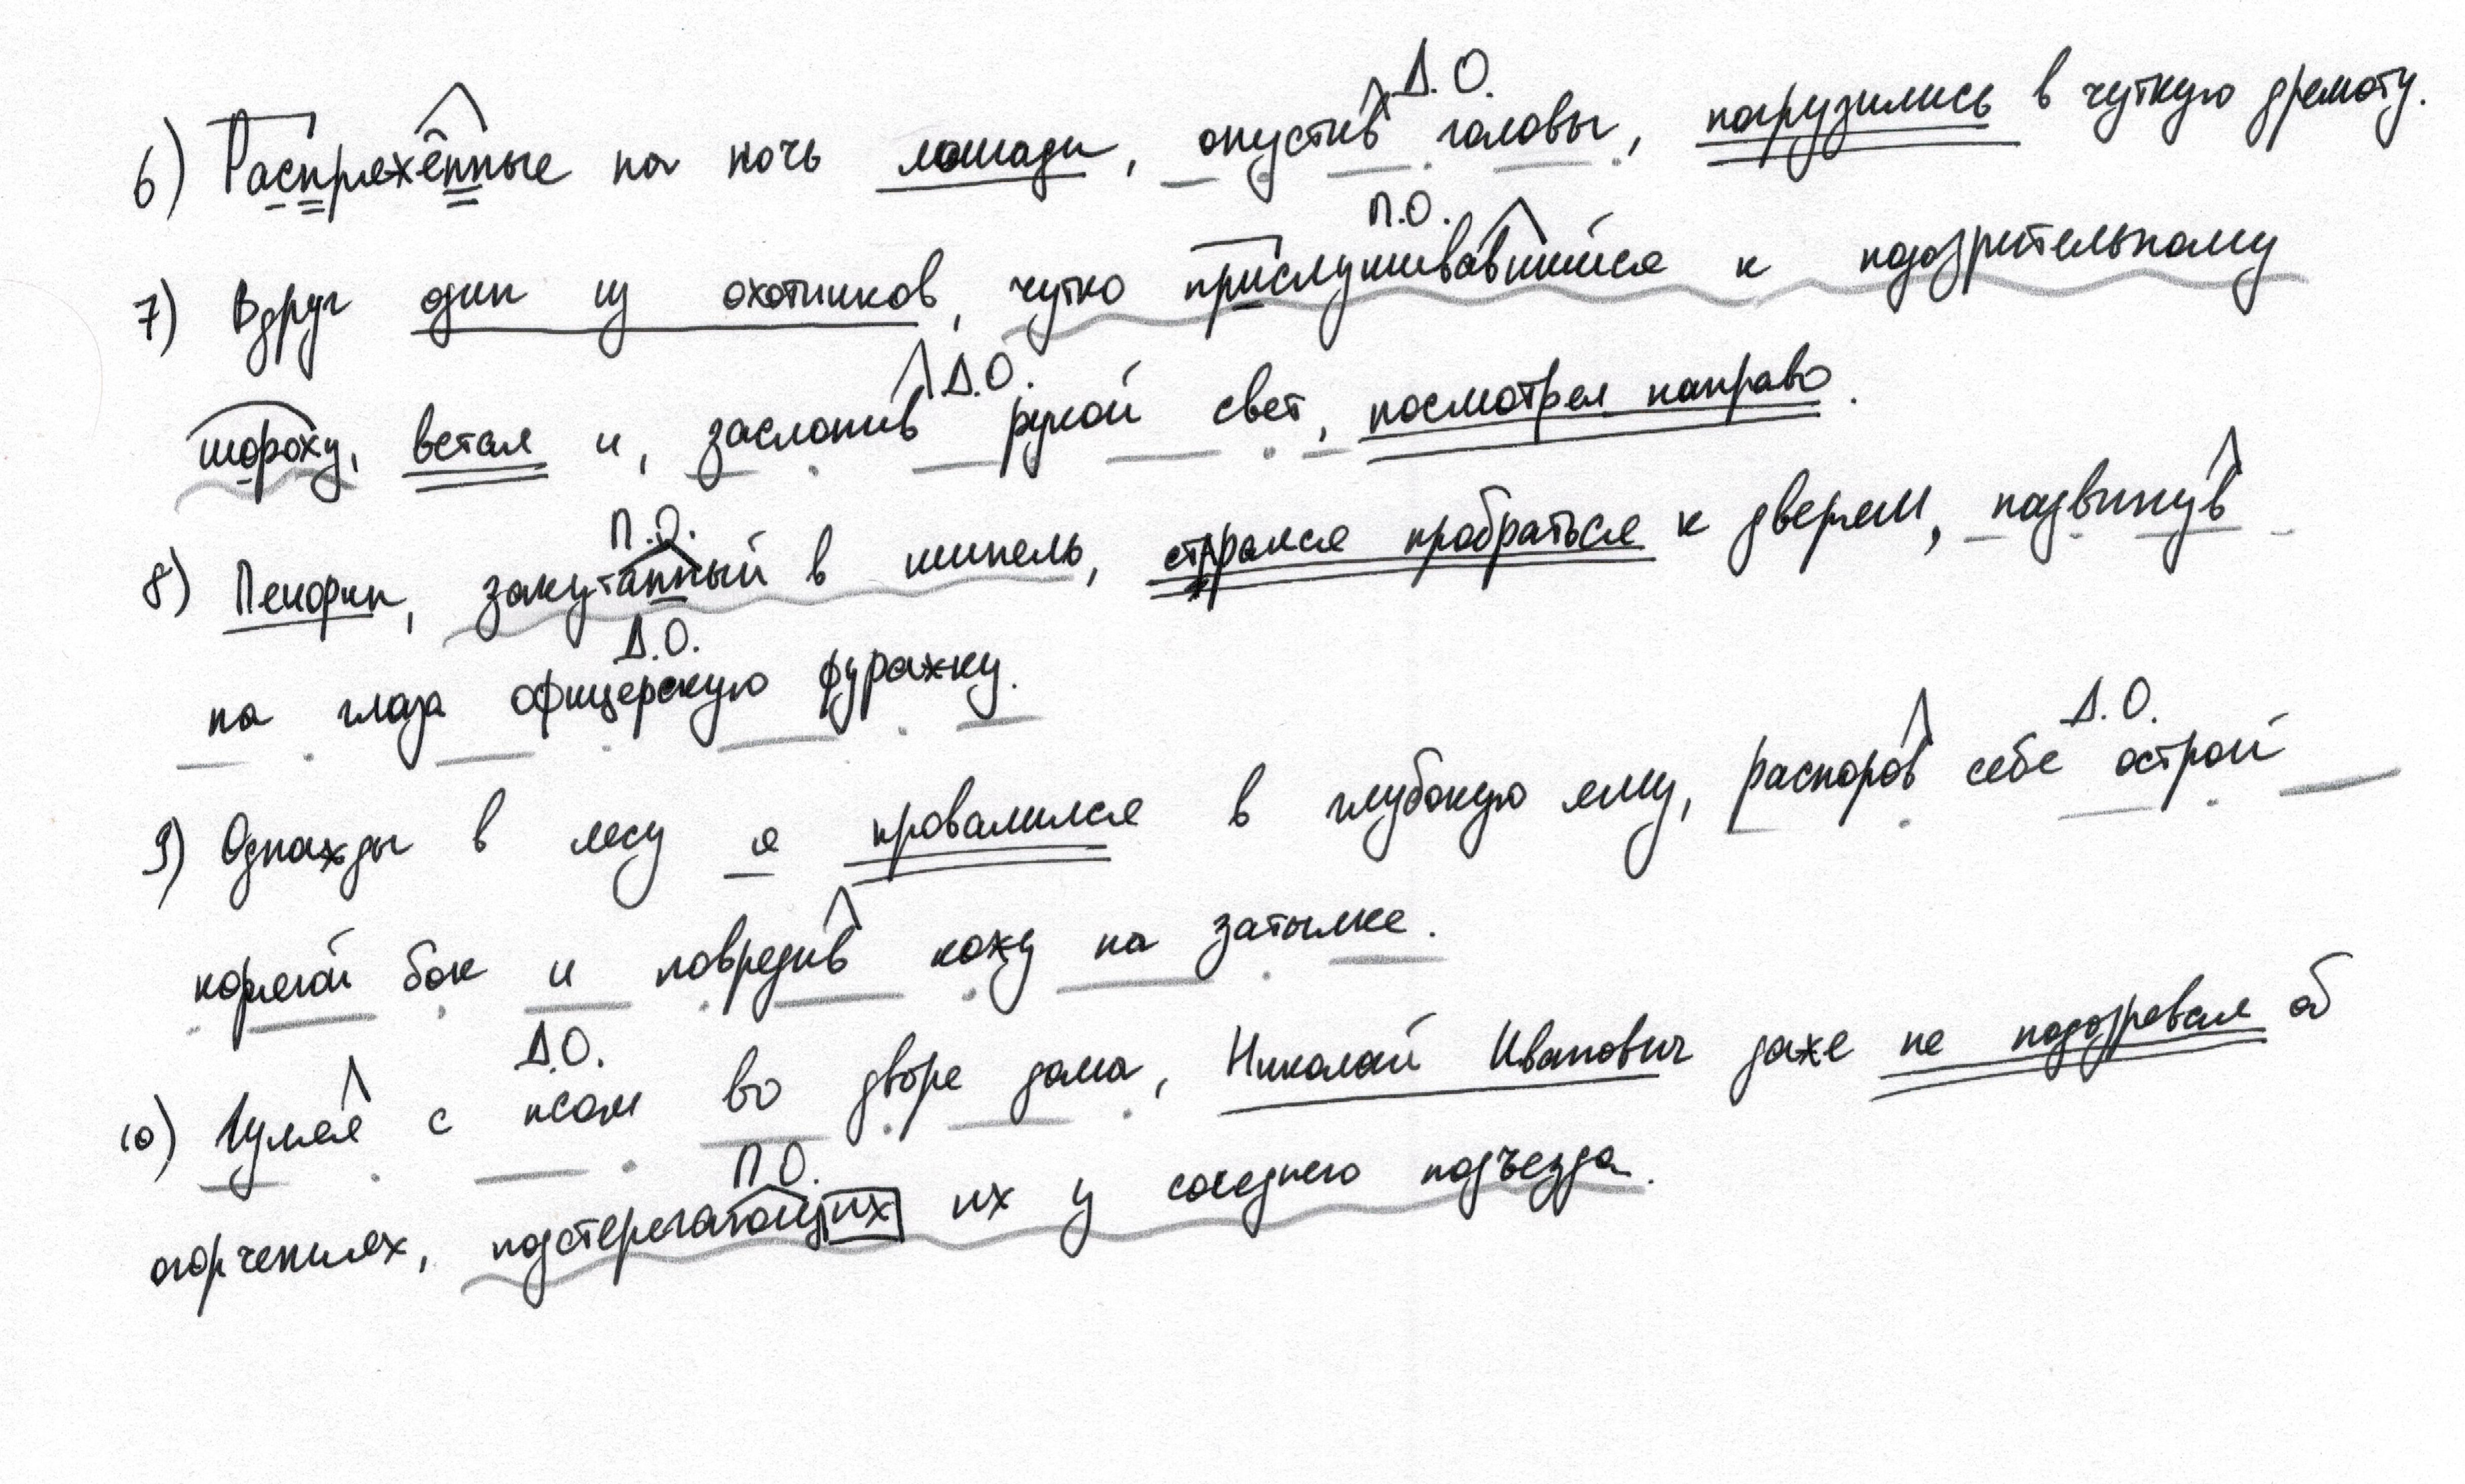 Д.О.
6) Распряжённые на ночь лошади, опустив головы, погрузились в чуткую дремоту.
П.О.
7) Вдруг один из охотников, чутко прислушивавшийся к подозрительному
Д.О.
шороху, встал и, заслонив рукой свет, посмотрел направо.
П.О.
8) Печорин, закутанный в шинель, старался пробраться к дверям, надвинув
Д.О.
на глаза офицерскую фуражку.
Д.О.
9) Однажды в лесу я провалился в глубокую яму, распоров себе острой
корягой бок и повредив кожу на затылке.
Д.О.
10) Гуляя с псом во дворе дома, Николай Иванович даже не подозревал об
П.О.
огорчениях, подстерегающих их у соседнего подъезда.